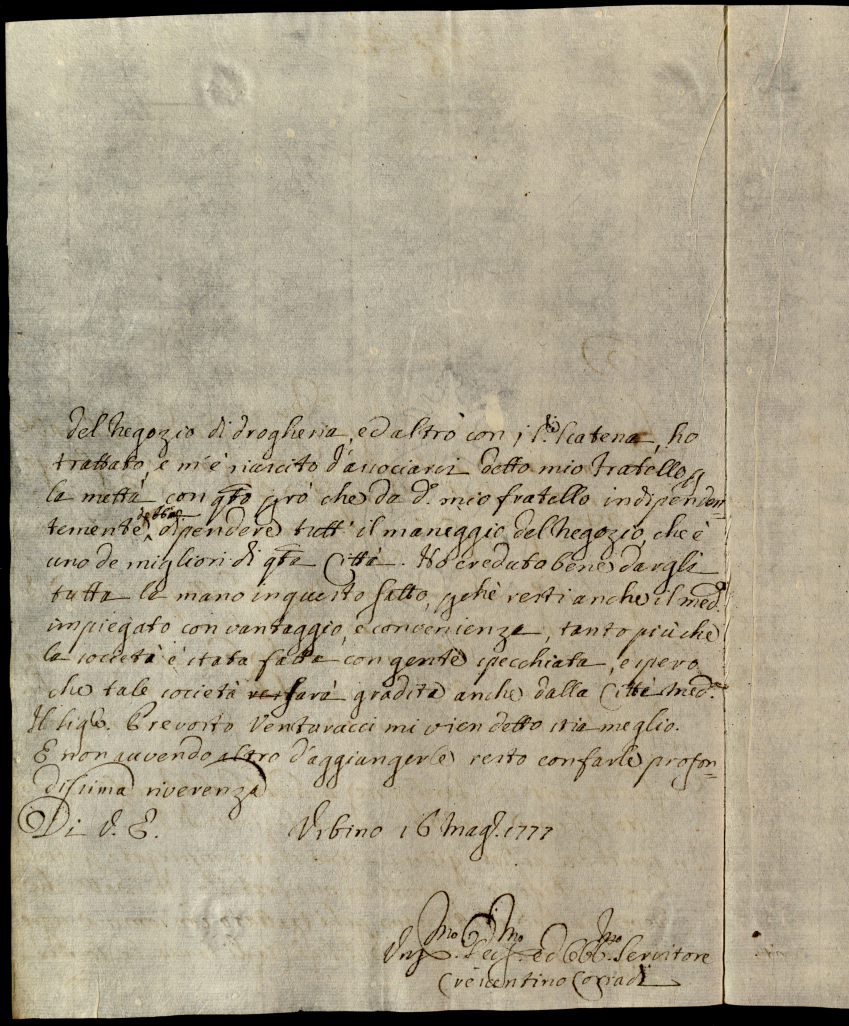 del Negozio di drogheria, ed altro con i S.ri Scatena, ho
trattato, e m'è riuscito d'associarci detto mio Fratello p
la mettà con qto però che da d.o mio fratello indipenden=
temente debba dipendere tutt' il maneggio del Negozio, che è
uno de migliori di qta Città. Ho creduto bene dargli
tutta la mano in questo fatto, pchè resti anche il med.o
impiegato con vantaggio, e convenienza, tanto più che
la società è stata fatta con gente specchiata, e spero
che tale società sarà gradita anche dalla Città med.a
Il Sig.e Prevosto Venturucci mi vien detto stia meglio.
E non avvendo altro d'aggiangerle resto con farle profon=
dissima riverenza
Di V. E. Urbino 16 Mag.o 1777
Um.mo Dev.mo ed Obb.mo Servitore
Crescentino Corradi